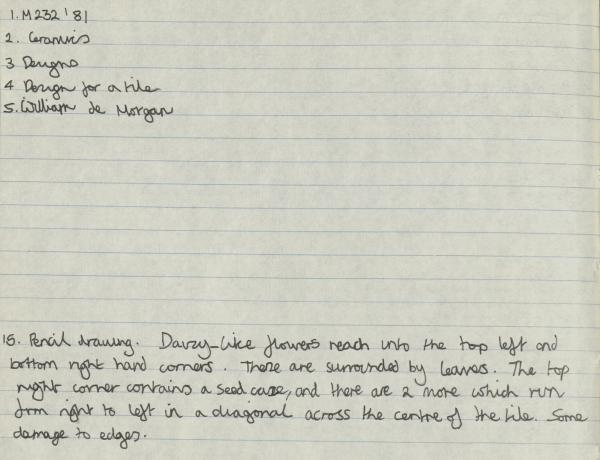 1. M232 '81
2. Ceramics
3 Designs
4 Design for a tile
5. William de Morgan
15. Pencil drawing. Daisy-like flowers reach into the top left and
bottom right hand corners. These are surrounded by leaves. The top
right corner contains a seed case, and there are 2 more which run
from right to left in a diagonal across the centre of the tile. Some
damage to edges.